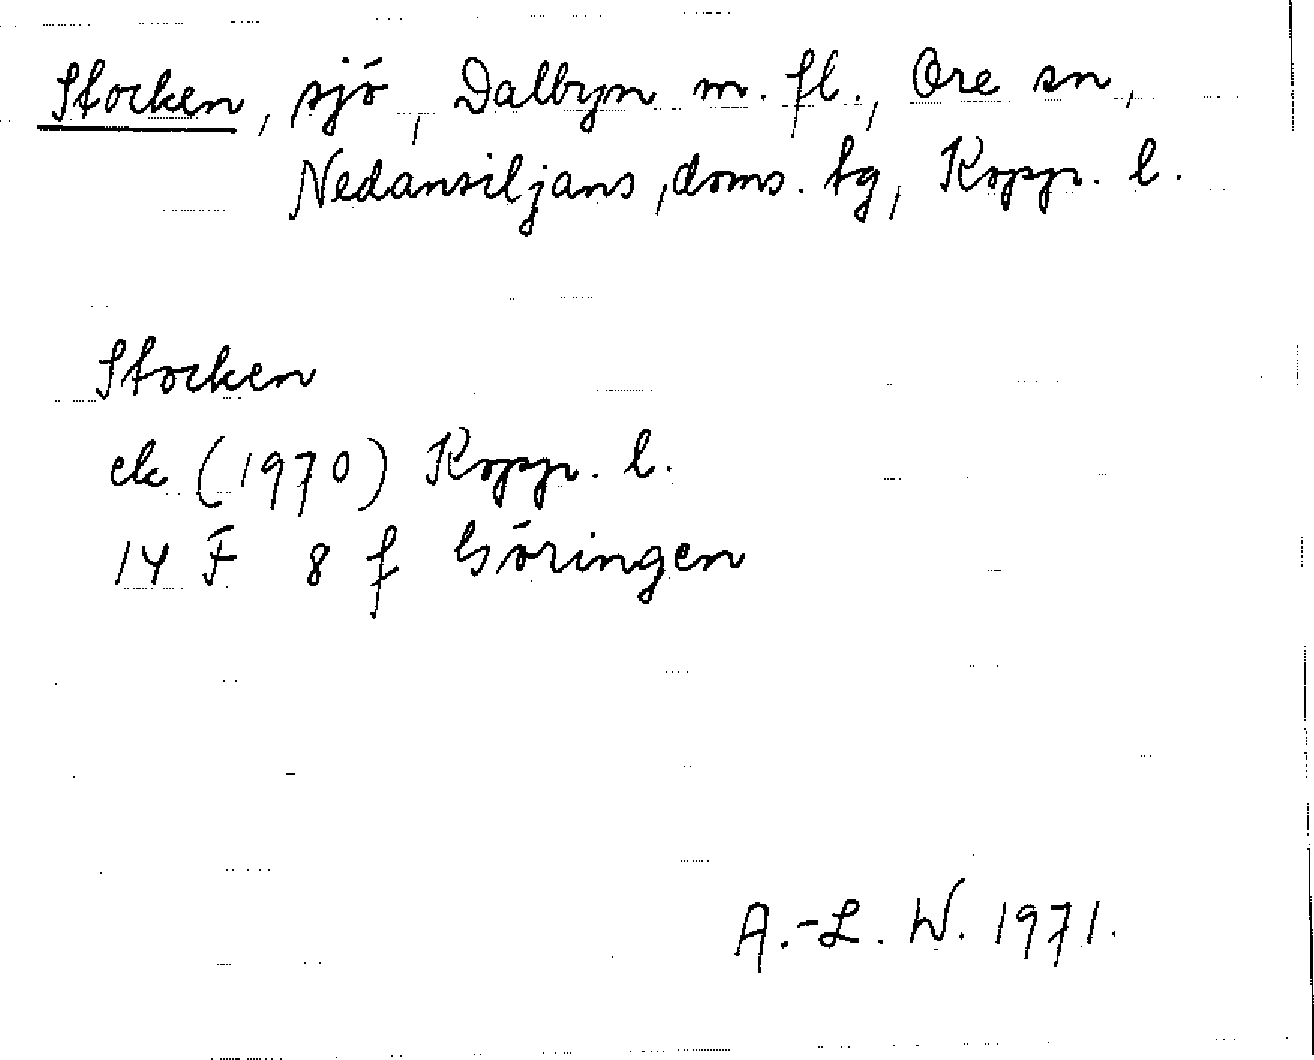 Stocken, sjö, Dalbyn m. fl., Ore sn,
Nedansiljans, doms. tg, Kopp. l.
Stocken
ek (1970) Kopp. l.
14 F 8 f Göringen
A.-L. W. 1971.